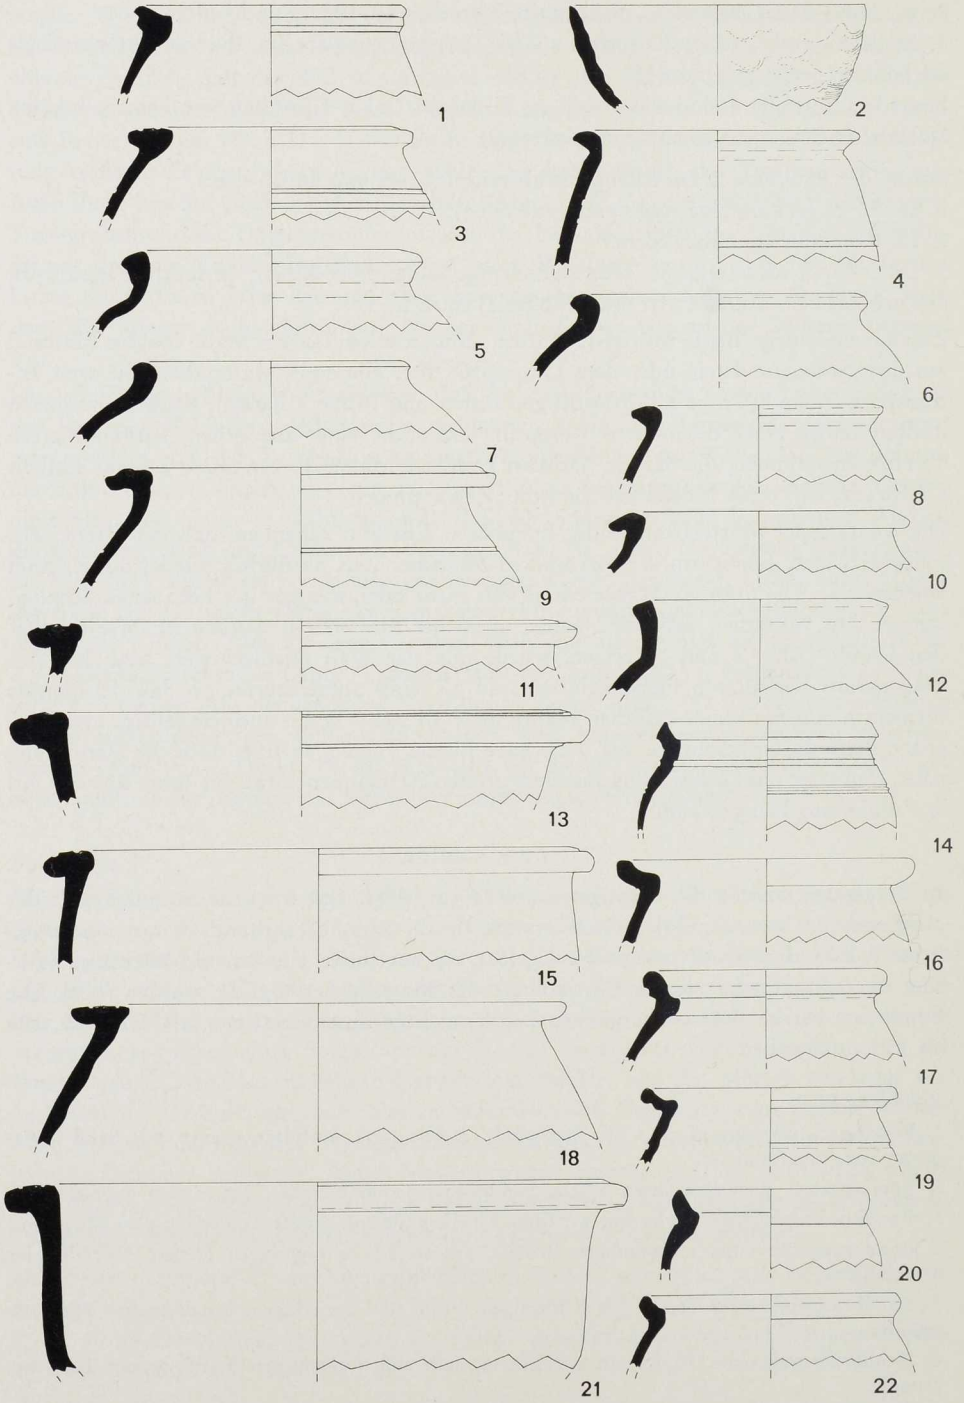 1
2
3
4
5
6
7
8
9
10
11
12
13
14
15
16
17
18
19
20
21
22